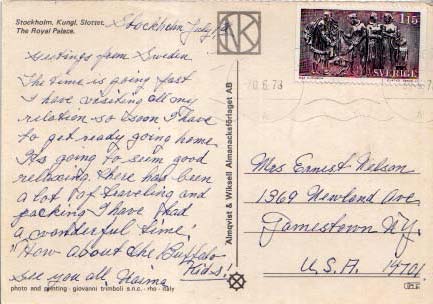 Stockholm. Kungl. Slottet.
The Royal Palace.
Stockholm July
Greetings from Sweden
The time is going fast
I have visiting all my
relation so soon I have
to get ready going home
Its going to seem good
relaxing. there has been
a lot of traveling and
packing I have had
a wonderful time!
"How about the Buffalo
Kids!
See you all, Naima
photo and printing - giovanni trimboli s.n.c. - rho - italy
Almqvist & Wiksell Almanacksförlaget AB
NK
115
SVERIGE
Mrs Ernest Nelson
1369 Newland Ave
Jamestown N.Y.
U.S.A. 14701